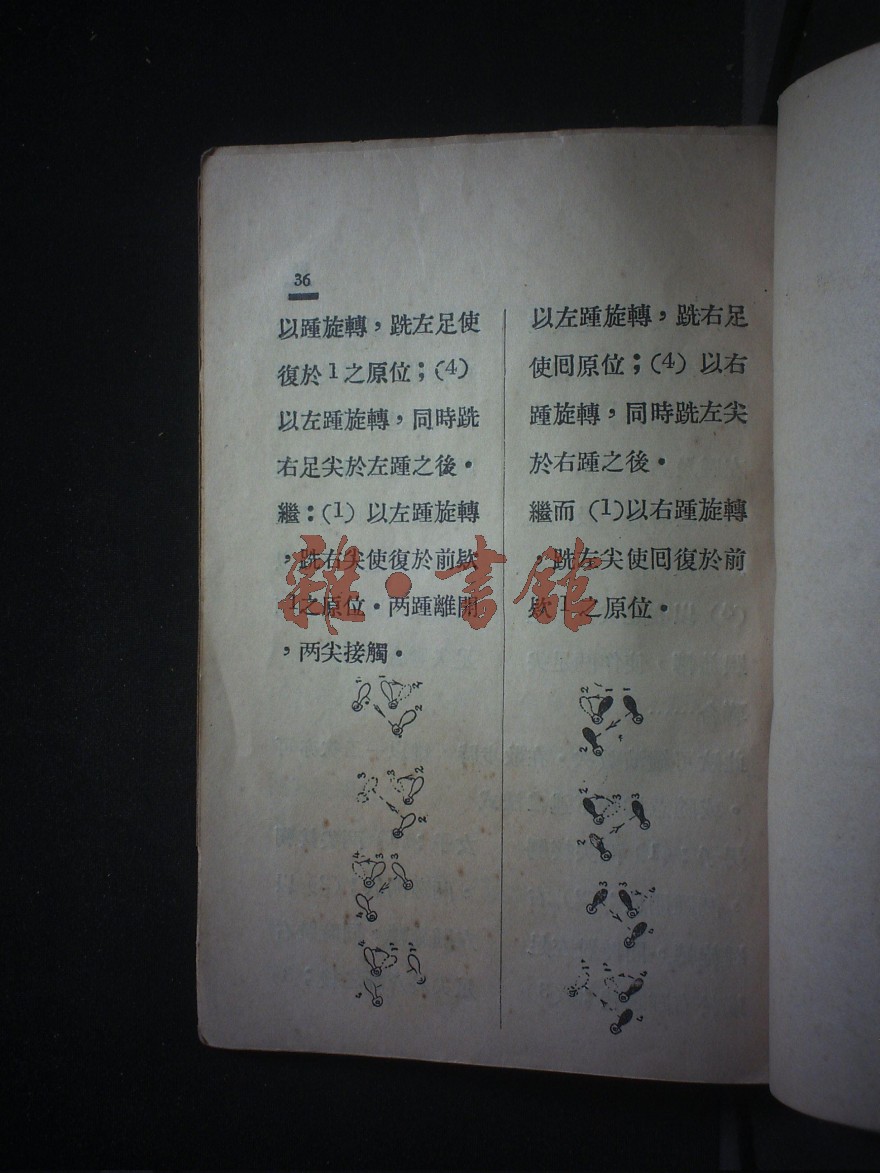 36
以踵旋轉，跣左足使
復於1之原位；(4)
以左踵旋轉，同時跣
右足尖於左踵之後。
繼：(1) 以左踵旋轉
，跣右尖使復於前欵
1之原位。两踵離開
，两尖接觸。
以左踵旋轉，跣右足
使囘原位；(4) 以右
踵旋轉，同時跣左尖
於右踵之後。
繼而 (1)以右踵旋轉
，跣左尖使囘復於前
欵1之原位。
雜·書館